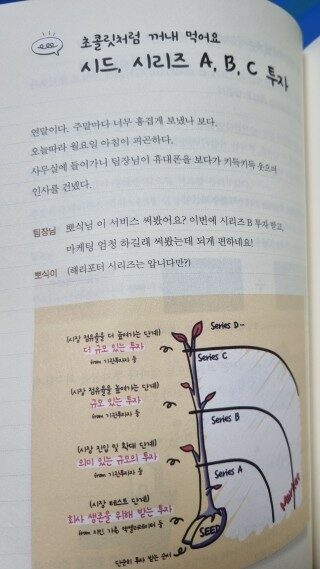 초콜릿처럼 꺼내 먹어요
시드, 시리즈 A, B, C 투자
연말이다. 주말마다 너무 흥겹게 보냈나 보다.
오늘따라 월요일 아침이 피곤하다.
사무실에 들어가니 팀장님이 휴대폰을 보다가 키득키득 웃으며
인사를 건넸다.
팀장님 뽀식님 이 서비스 써봤어요? 이번에 시리즈 B 투자 받고,
마케팅 엄청 하길래 써봤는데 되게 편하네요!
뽀식이 (해리포터 시리즈는 압니다만?)
Series D…
(시장 점유율을 더 높여가는 단계)
더 규모 있는 투자
from 기관투자자 등
Series C
(시장 점유율을 높여가는 단계)
규모 있는 투자
from 기관투자자 등
Series B
(시장 진입 및 확대 단계)
의미 있는 규모의 투자
from 기관투자자 등
Series A
(시장 테스트 단계)
회사 생존을 위해 받는 투자
from 지인, 가족, 액셀러레이터 등
SEED
Market
단순히 투자 받는 순서